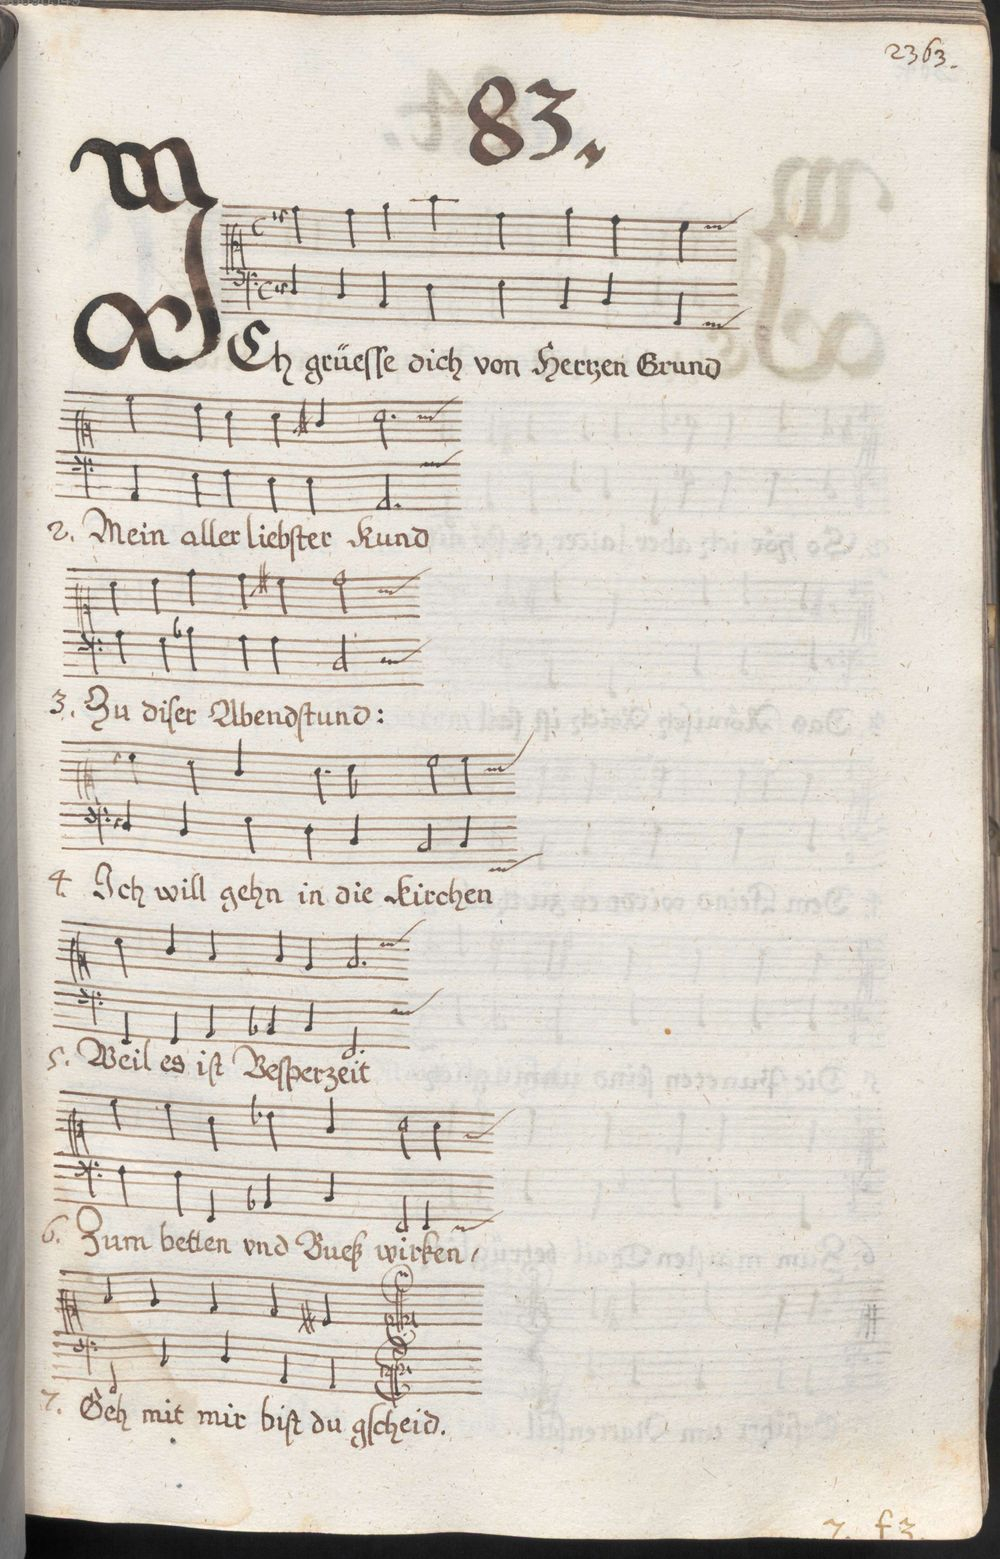 2363.
83.
ICh grüesse dich von Hertzen Grund
2. Mein aller liebster Kund
3. Zu diser Abendstund:
4. Ich will gehn in die Kirchen
5. Weil es ist Vesperzeit
6. Zum betten vnd Bueß wirken,
7. Geh mit mir bist du gscheid.
7. f 3.